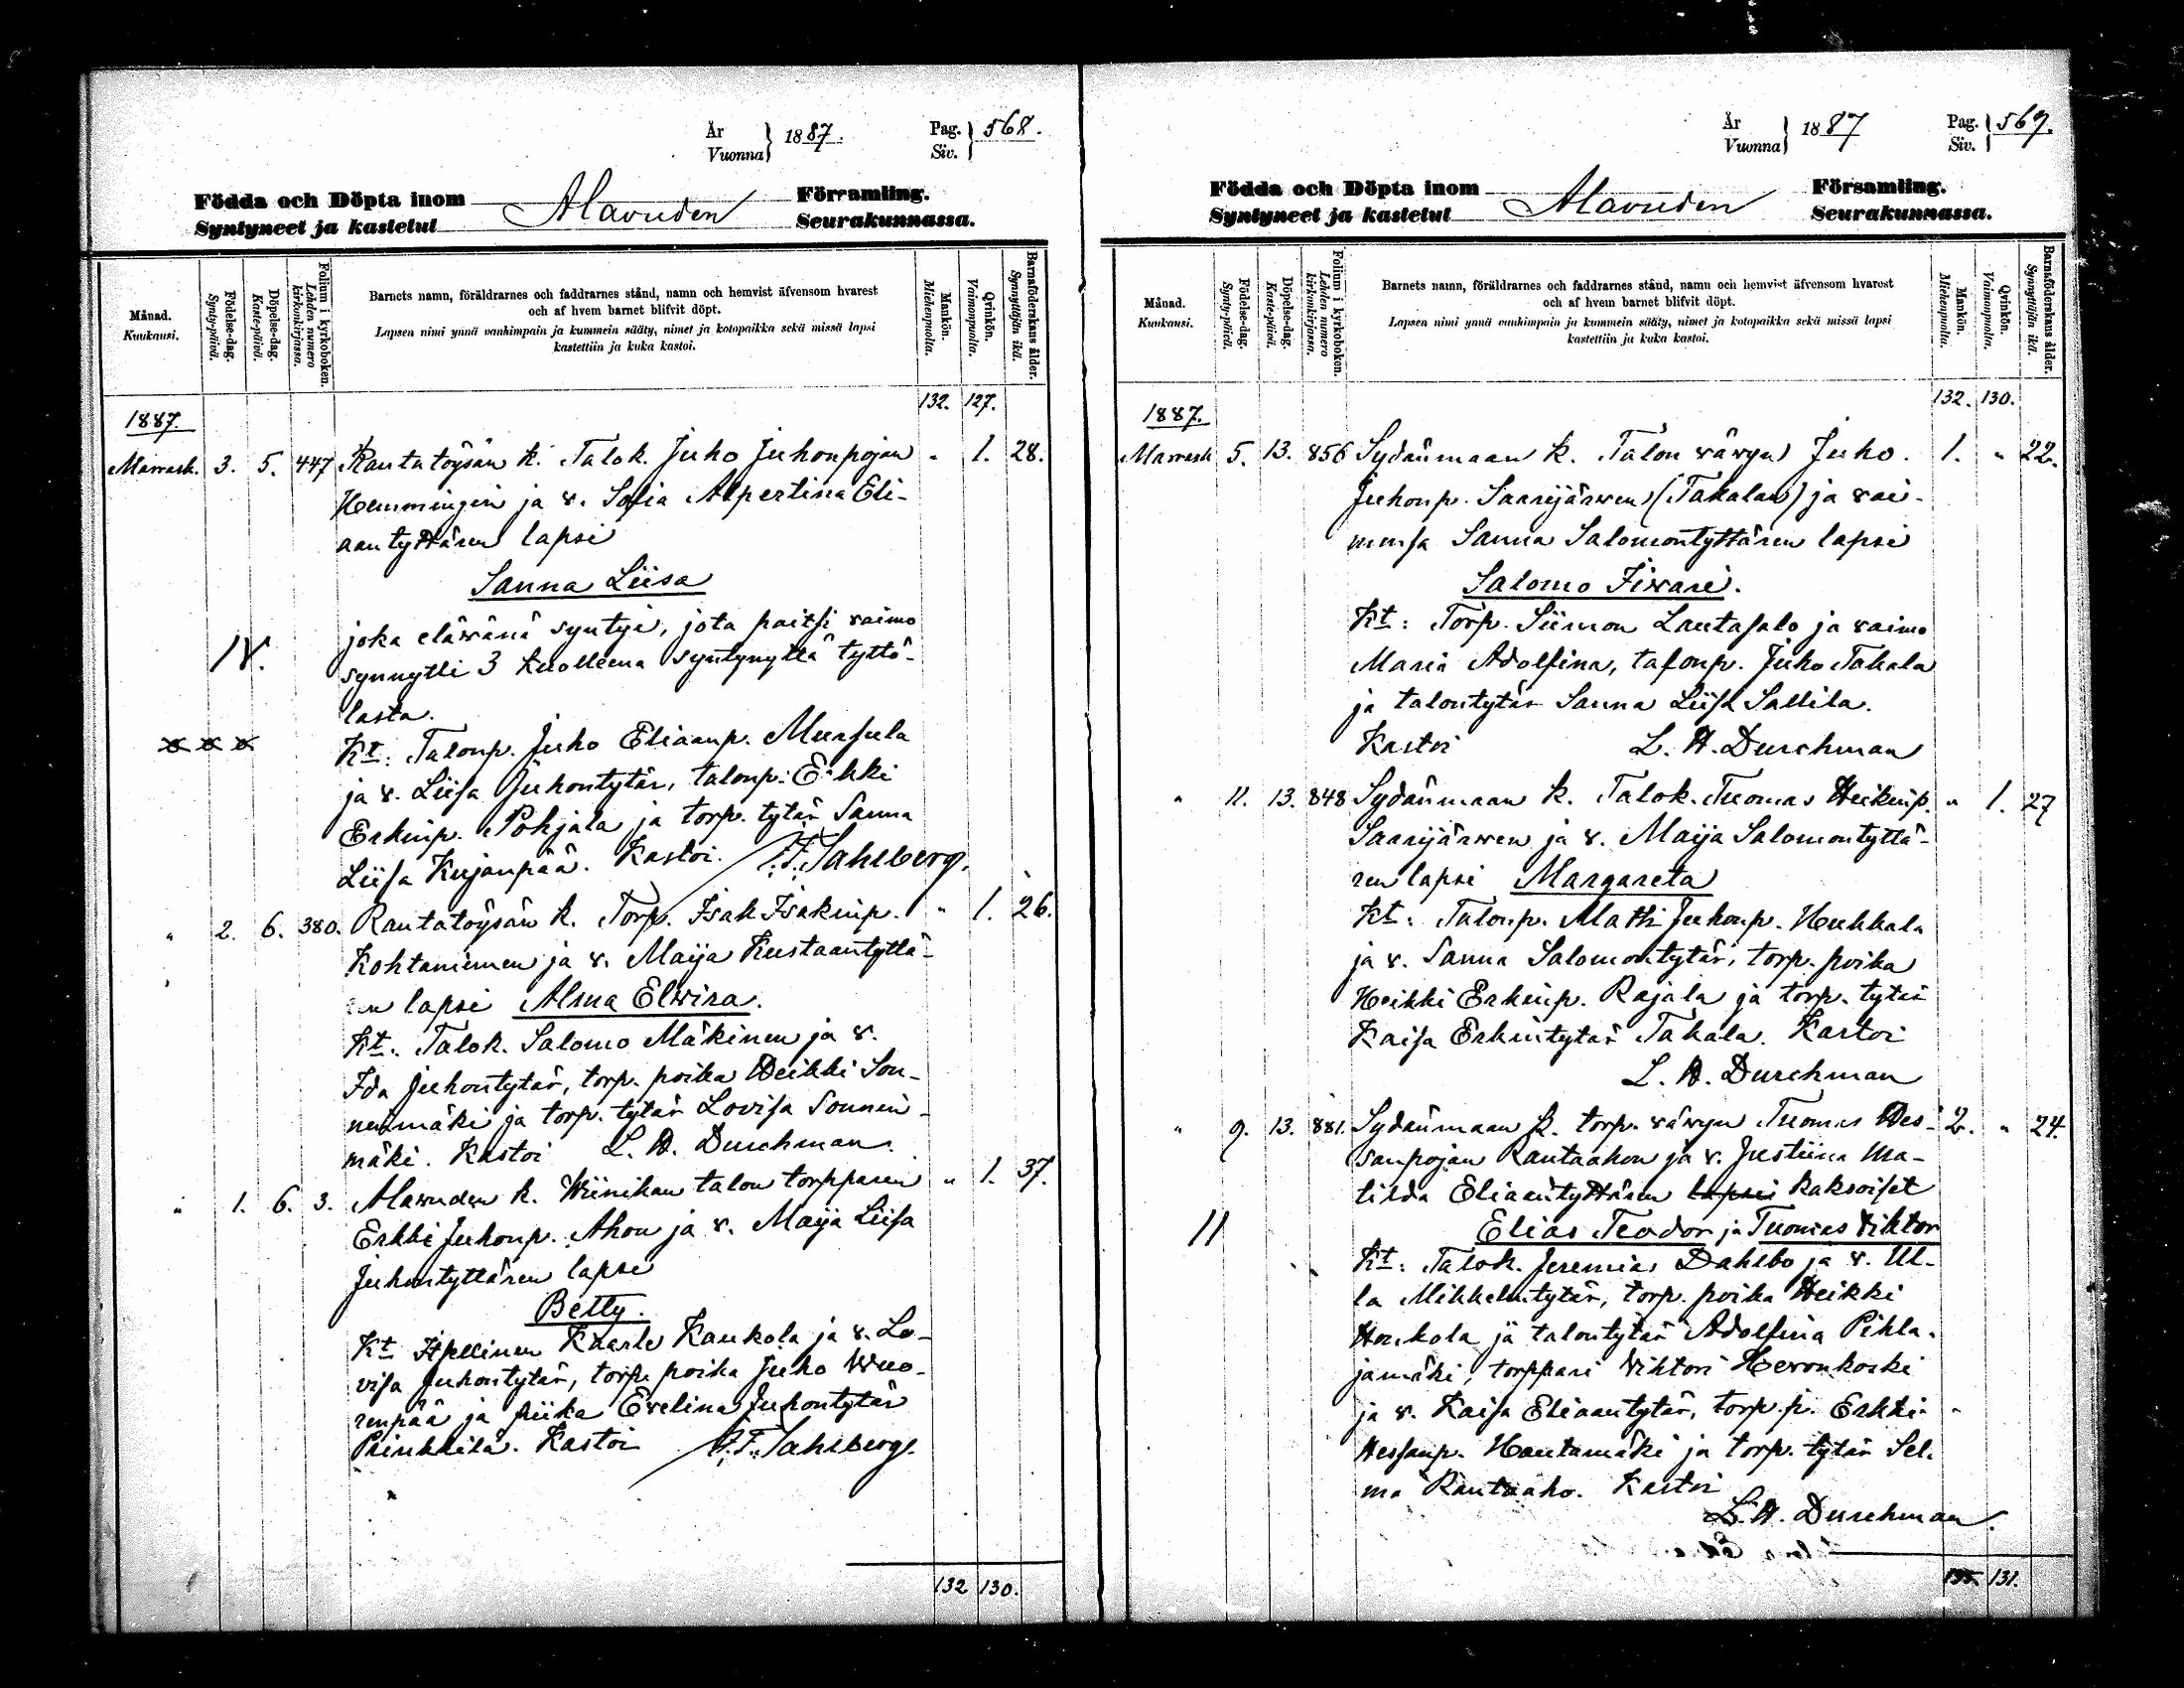 År
Vuonna } 1887.
Pag.
Siv. } 568.
Födda och Döpta inom Alavuden Församling.
Syntyneet ja kastetut Seurakunnassa.
Månad.
Kuukausi.
Födelse-dag.
Synty-päivä.
Döpelse-dag.
Kaste-päivä.
Folium i kyrkoboken.
Lehden numero
kirkonkirjassa.
Barnets namn, föräldrarnes och faddrarnes stånd, namn och hemvist äfvensom hvarest
och af hvem barnet blifvit döpt.
Lapsen nimi ynnä vanhimpain ja kummein sääty, nimet ja kotopaikka sekä missä lapsi
kastettiin ja kuka kastoi.
Mankön.
Miehenpuolta.
Qvinkön.
Vaimonpuolta.
Barnaföderskans ålder.
Synnyttäjän ikä.
132. 127.
1887.
Marrask. 3. 5. 447 Rantatöysän k. Talok. Juho Juhonpojan " 1. 28.
Hemmingin ja v. Sofia Alpertina Eli-
aantyttären lapsi
Sanna Liisa
joka eläwänä syntyi, jota paitsi vaimo
IV. synnytti 3 kuollema syntynyttä tyttö-
lasta.
Kt: Talonp. Juho Eliaanp. Mursula
ja v. Liisa Juhontytär, talonp. Erkki
Erkinp. Pohjala ja torp. tytär Sanna
Liisa Kujanpää. Kastoi. F. F. Sahlberg.
" 2. 6. 380. Rantatöysän k. Torp. Isak Isakinp. " 1. 26.
Kohtaniemen ja v. Maija Kustaantyttä-
ren lapsi Alma Elwira.
Kt: Talok. Salomo Mäkinen ja v.
Ida Juhontytär, torp. poika Heikki Son-
ninmäki ja torp. tytär Lovisa Sonnin-
mäki. Kastoi L. H. Durchman.
" 1. 6. 3. Alawuden k. Wiinikan talon torpparin " 1. 37.
Erkki Juhonp. Ahon ja v. Maija Liisa
Juhontyttären lapsi
Betty.
Kt Itsellinen Kaarle Kaukola ja v. Lo-
visa Juhontytär, torp. poika Juho Wuo-
renpää ja piika Evelina Juhontytär
Kastoi F. F. Sahlberg.
132 130.
År
Vuonna } 1887
Pag.
Siv. } 569.
Födda och Döpta inom Alavuden Församling.
Syntyneet ja kastetut Seurakunnassa.
Månad.
Kuukausi.
Födelse-dag.
Synty-päivä.
Döpelse-dag.
Kaste-päivä.
Folium i kyrkoboken.
Lehden numero
kirkonkirjassa.
Barnets namn, föräldrarnes och faddrarnes stånd, namn och hemvist äfvensom hvarest
och af hvem barnet blifvit döpt.
Lapsen nimi ynnä vanhimpain ja kummein sääty, nimet ja kotopaikka sekä missä lapsi
kastettiin ja kuka kastoi.
Mankön.
Miehenpuolta.
Qvinkön.
Vaimonpuolta.
Barnaföderskans ålder.
Synnyttäjän ikä.
132. 130.
1887.
Marrask 5. 13. 856 Sydänmaan k. Talon vävyn Juho 1. " 22.
Juhonp. Saarijärwen (Takalan) ja vai-
monsa Sanna Salomontyttären lapsi
Salomo Iiwari.
Kt: Torp. Siimon Lautasalo ja vaimo
Maria Adolfina, talonp. Juho Takala
ja talontytär Sanna Liisa Sallila.
Kastoi L. H. Durchman
" 11. 13. 848 Sydänmaan k. Talok. Tuomas Heikinp. " 1. 27
Saarijärwen ja v. Maija Salomontyttä-
ren lapsi Margareta
Kt: Talonp. Matti Juhonp. Heikkala
ja v. Sanna Salomontytär, torp. poika
Heikki Erkinp. Rajala ja torp. tytär
Kaisa Erkintytär Takala. Kastoi
L. H. Durchman
" 9. 13. 881. Sydänmaan k. torp. vävyn Tuomas Hes- 2. " 24.
sanpojan Rantaahon ja v. Justiina Ma-
tilda Eliaantyttären lapsi kaksoiset
II Elias Teodor ja Tuomas Viktor
Kt: Talok. Jeremias Dahlbo ja v. Ul-
la Mikkelintytär, torp. poika Heikki
Honkola ja talontytär Adolfina Pihla-
jamäki, torppari Viktori Heronkoski
ja v. Kaisa Eliaantytär, torp. p. Erkki
Hessanp. Hautamäki ja torp. tytär Sel-
ma Rantaaho. Kastoi
L. H. Durchman.
135. 131.